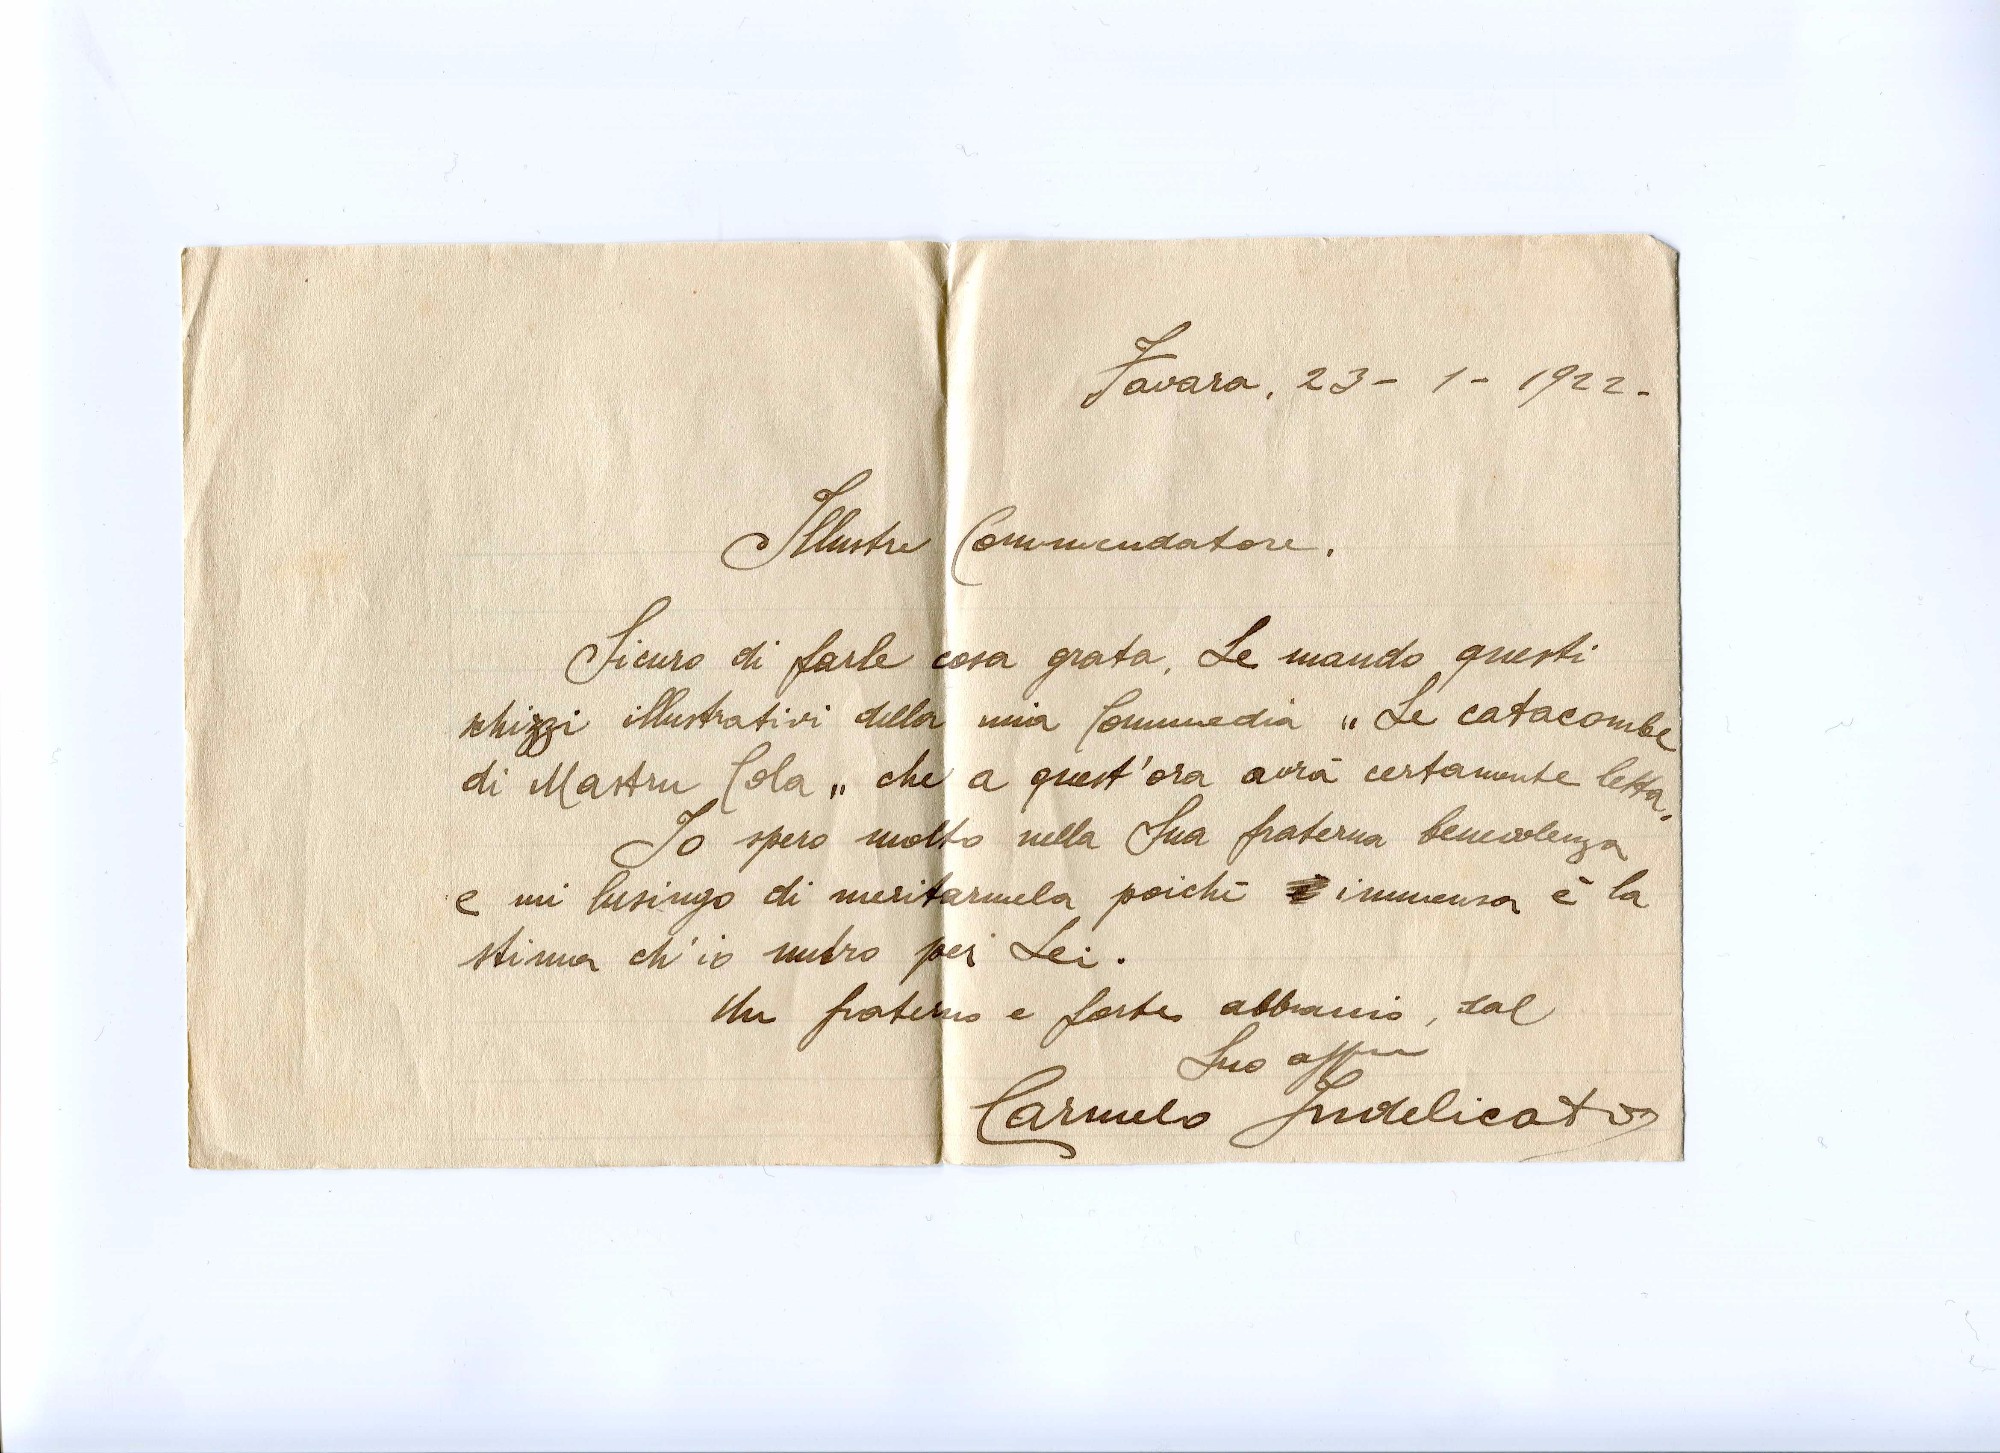 Favara, 23 - 1 - 1922 -
Illustre Commendatore.
Sicuro di farle cosa grata, Le mando questi
schizzi illustrativi della mia Commedia „ Le catacombe
di Mastru Cola „ che a quest'ora avrà certamente letta.
Io spero molto nella Sua fraterna benevolenza
e mi lusingo di meritarmela poichè immensa è la
stima ch'io nutro per Lei.
Un fraterno e forte abbraccio, dal
Suo affmo
Carmelo Indelicato